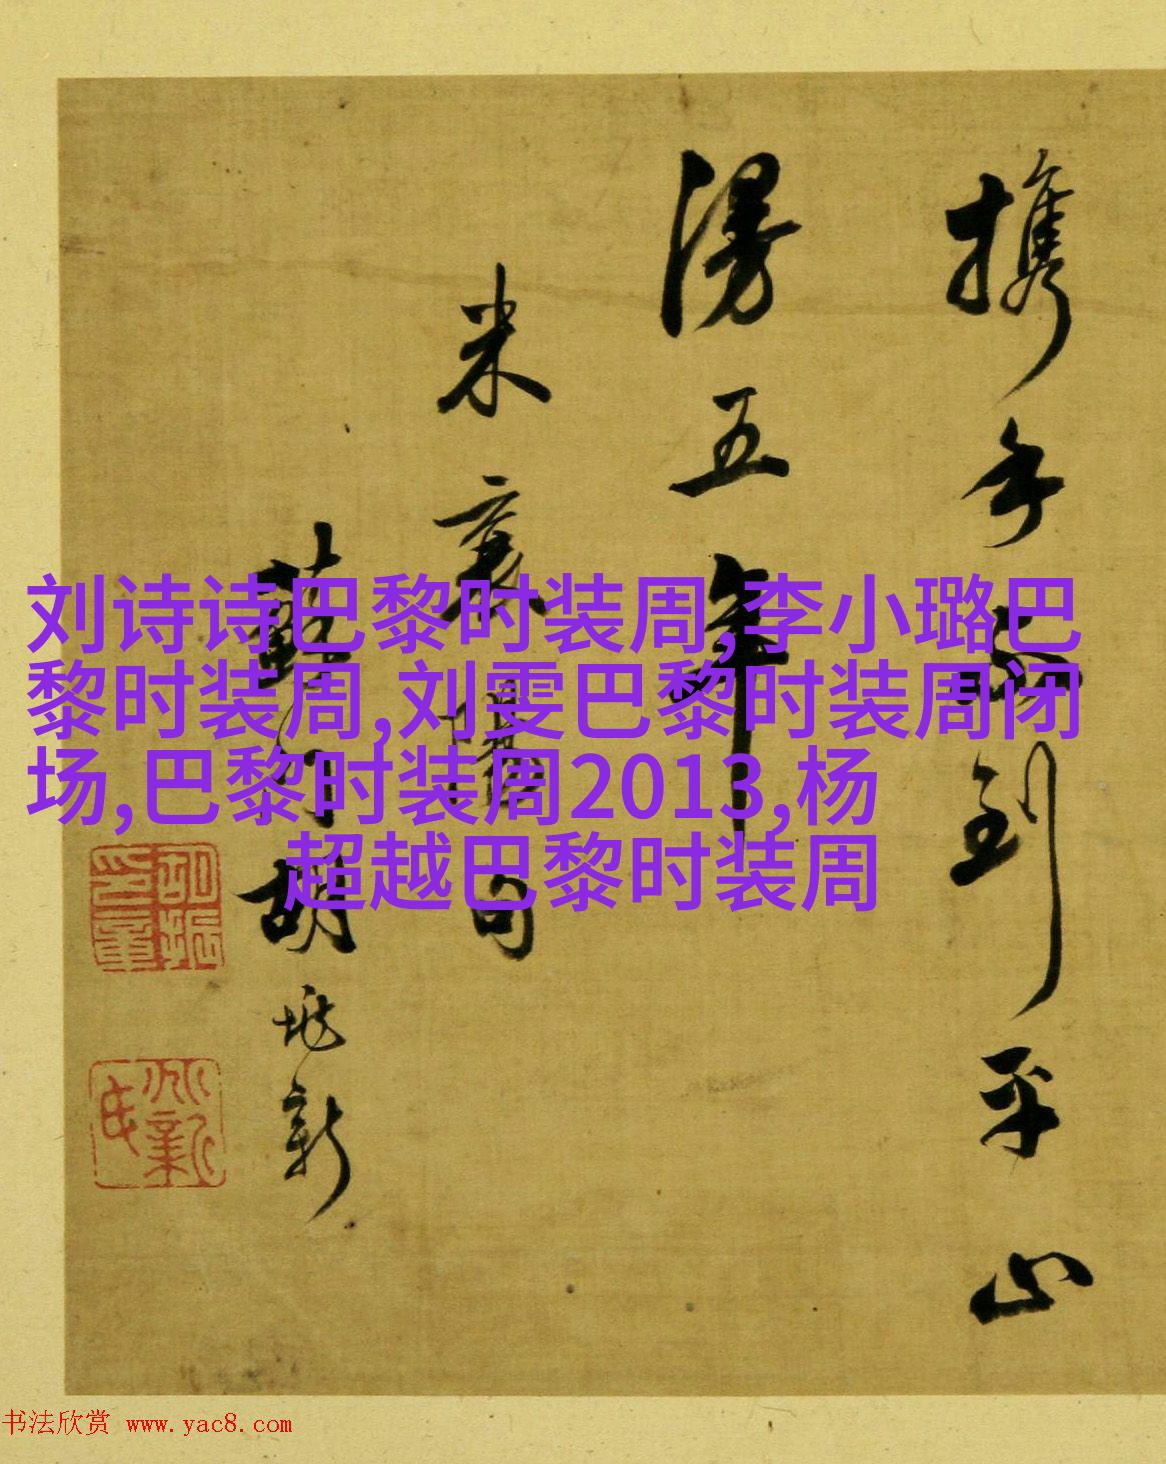 攜手到平山
漫五年
米襄陽句
蘇胡垗新
刘诗诗巴黎时装周,李小璐巴
黎时装周,刘雯巴黎时装周闭
场,巴黎时装周2013,杨
超越巴黎时装周
书法欣赏 www.yac8.com